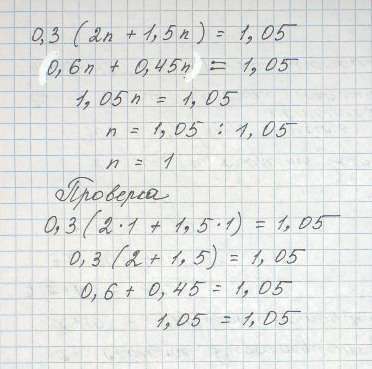 0,3 (2n + 1,5n) = 1,05
(0,6n + 0,45n) = 1,05
1,05n = 1,05
n = 1,05 : 1,05
n = 1
Проверка
0,3 (2·1 + 1,5·1) = 1,05
0,3 (2 + 1,5) = 1,05
0,6 + 0,45 = 1,05
1,05 = 1,05